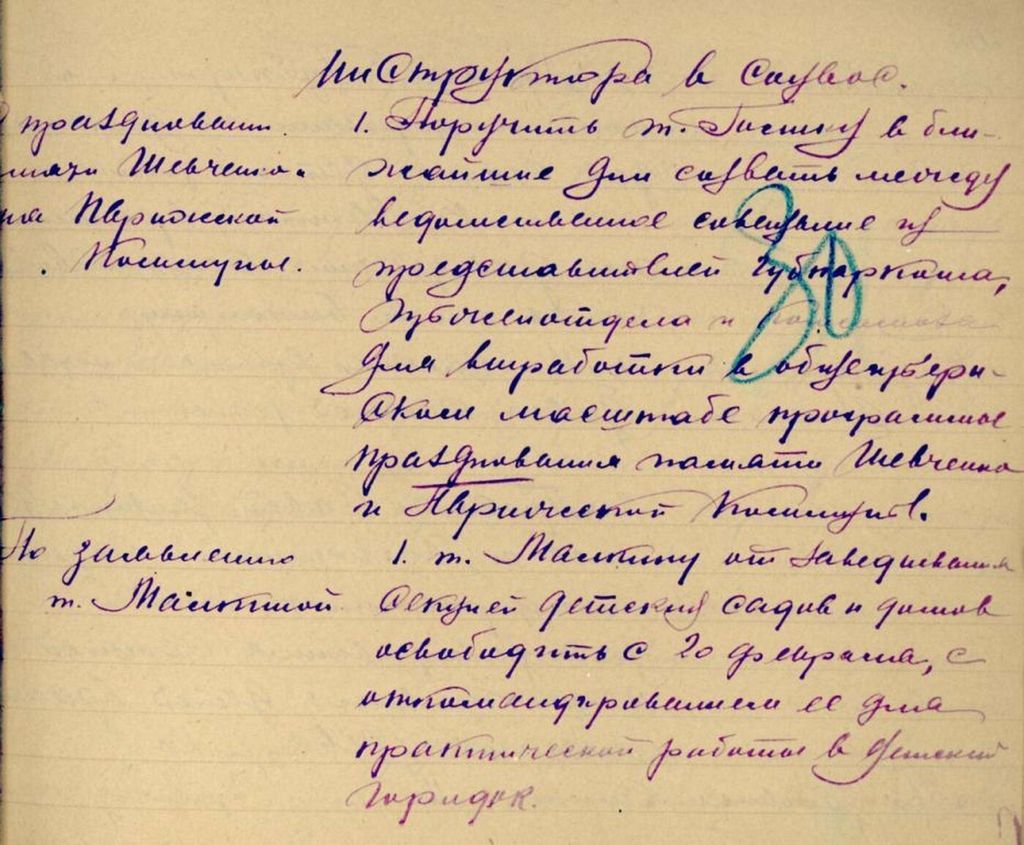 инструктора в соцвос.
празднования
памяти Шевченко и
Парижской
Коммуны.
1. Поручить т. в бли-
жайшие дни созвать между
ведомственное совещание из
представителей Губнаркома,
Губженотдела и
для выработки в общегуберн-
ском масштабе программы
празднования памяти Шевченко
и Парижской Коммуны.
По заявлению
т. Малкиной
1. т. Малкину от заведывания
секцией детских садов и домов
освободить с 20 февраля, с
откомандированием ее для
практической работы в детский
городок.
30